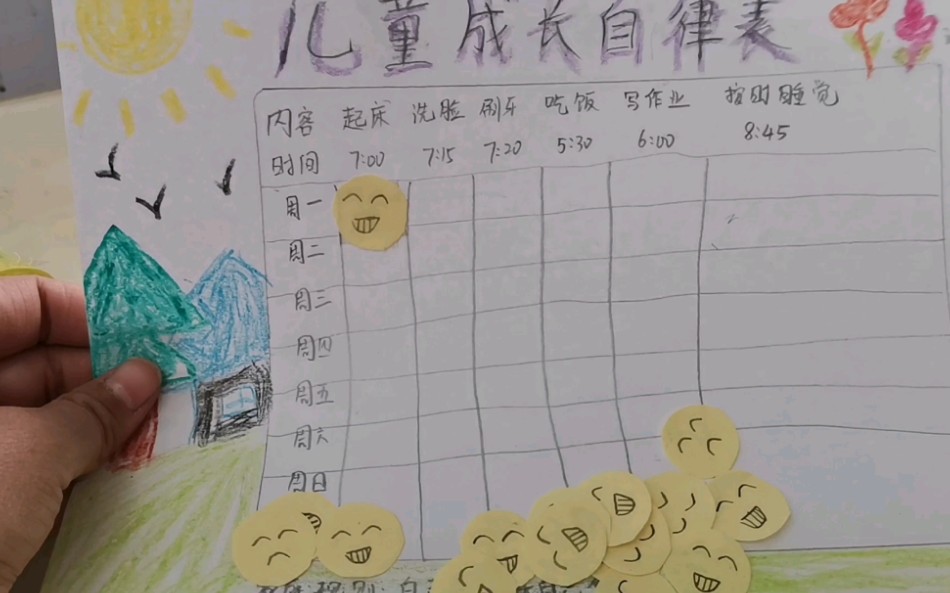 儿童成长自律表
内容 起床 洗脸 刷牙 吃饭 写作业 按时睡觉
时间 7:00 7:15 7:20 5:30 6:00 8:45
周一
周二
周三
周四
周五
周六
周日